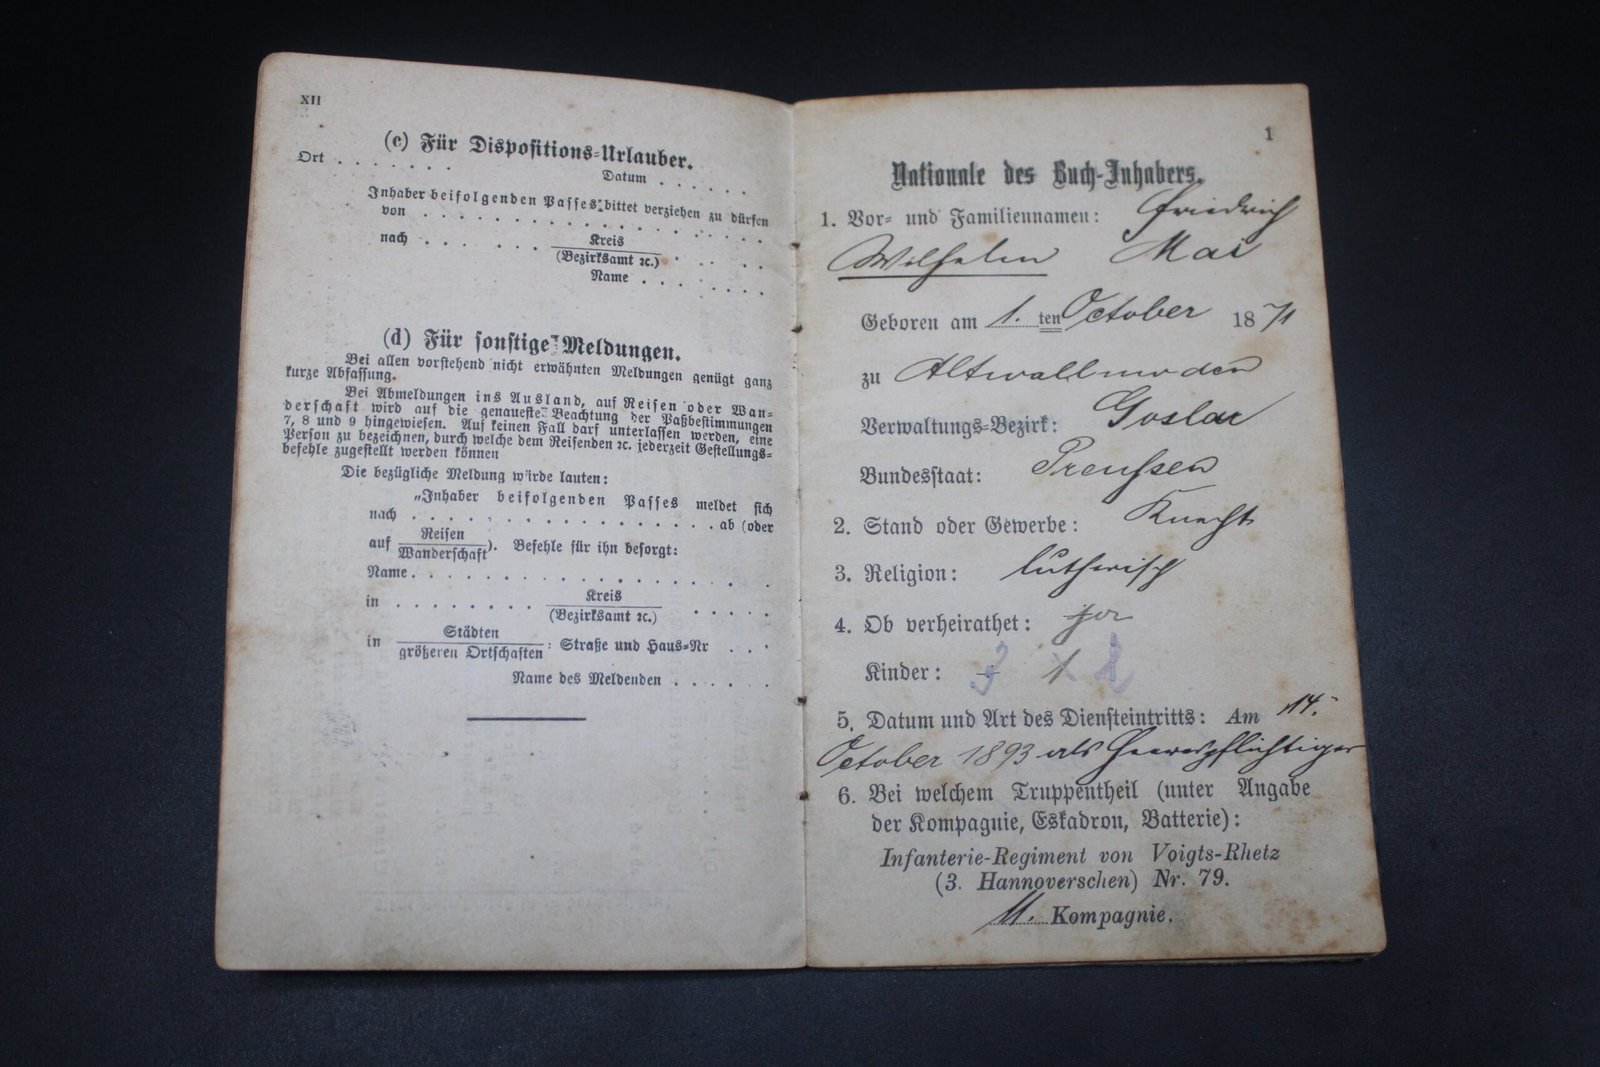 XII
(c) Für Dispositions-Urlauber.
Ort . . . . . . .
Datum . . . . . .
Inhaber beifolgenden Passes bittet verziehen zu dürfen
von . . . . . . . . . . . . . . . . .
nach . . . . . . Kreis . . . .
(Bezirksamt ꝛc.)
Name . . . . . . . .
(d) Für sonstige Meldungen.
Bei allen vorstehend nicht erwähnten Meldungen genügt ganz
kurze Abfassung.
Bei Abmeldungen ins Ausland, auf Reisen oder Wan-
derschaft wird auf die genaueste Beachtung der Paßbestimmungen
7, 8 und 9 hingewiesen. Auf keinen Fall darf unterlassen werden, eine
Person zu bezeichnen, durch welche dem Reisenden ꝛc. jederzeit Gestellungs-
befehle zugestellt werden können
Die bezügliche Meldung würde lauten:
„Inhaber beifolgenden Passes meldet sich
nach . . . . . . . . . . . . . . . . . . ab (oder
auf Reisen
Wanderschaft). Befehle für ihn besorgt:
Name . . . . . . . . . . . . . . . . . .
in . . . . . . . . Kreis . . . . .
(Bezirksamt ꝛc.)
in Städten
größeren Ortschaften: Straße und Haus-Nr . . .
Name des Meldenden . . . . . .
1
Nationale des Buch-Inhabers.
1. Vor- und Familiennamen: Friedrich
Wilhelm Mai
Geboren am 1. ten October 1871
zu Altwallmoden
Verwaltungs-Bezirk: Goslar
Bundesstaat: Preußen
2. Stand oder Gewerbe: Knecht
3. Religion: lutherisch
4. Ob verheirathet: ja
Kinder: 3 1 2
5. Datum und Art des Diensteintritts: Am 14.
October 1893 als Heerespflichtiger
6. Bei welchem Truppentheil (unter Angabe
der Kompagnie, Eskadron, Batterie):
Infanterie-Regiment von Voigts-Rhetz
(3. Hannoverschen) Nr. 79.
11. Kompagnie.